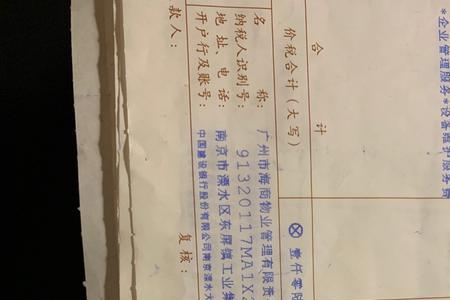 *企业管理服务*设备维护服务费
合 计
价税合计（大写） ⊗壹仟零
名 称：广州市海商物业管理有限责
纳税人识别号：91320117MA1X
地址、电话：南京市溧水区东屏镇工业集
开户行及账号：中国建设银行股份有限公司南京溧水
款人： 复核：